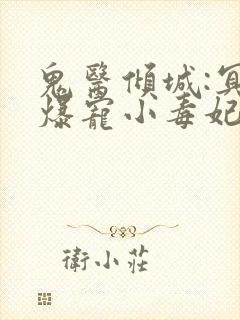 鬼醫傾城:冥
爆寵小毒妃
衛小莊